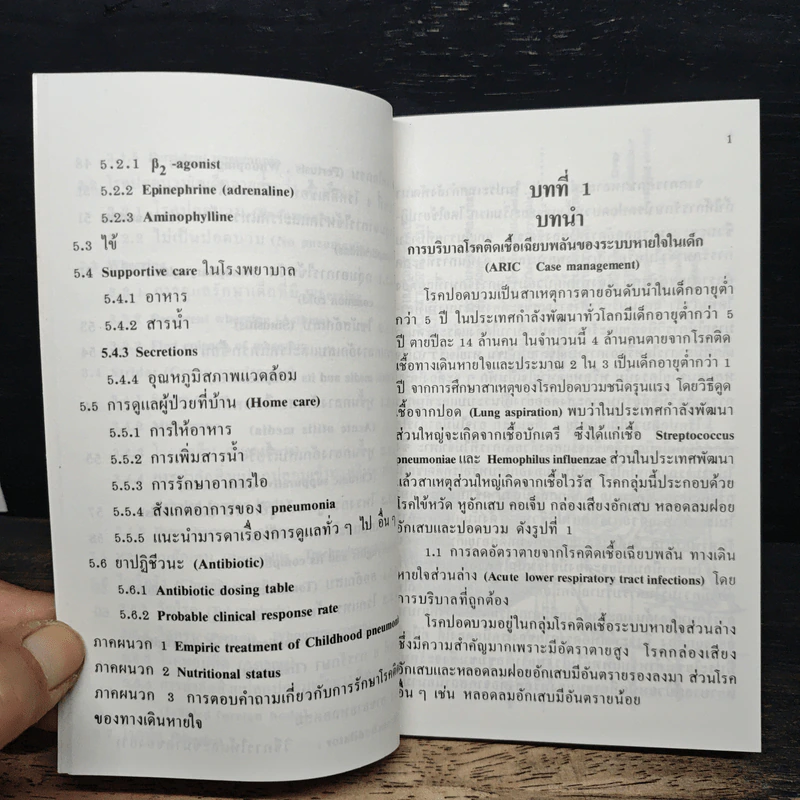 5.2.1 β2 -agonist
5.2.2 Epinephrine (adrenaline)
5.2.3 Aminophylline
5.3 ไข้
5.4 Supportive care ในโรงพยาบาล
5.4.1 อาหาร
5.4.2 สารน้ำ
5.4.3 Secretions
5.4.4 อุณหภูมิสภาพแวดล้อม
5.5 การดูแลผู้ป่วยที่บ้าน (Home care)
5.5.1 การให้อาหาร
5.5.2 การเพิ่มสารน้ำ
5.5.3 การรักษาอาการไอ
5.5.4 สังเกตอาการของ pneumonia
5.5.5 แนะนำมารดาเรื่องการดูแลทั่ว ๆ ไป อื่นๆ
5.6 ยาปฏิชีวนะ (Antibiotic)
5.6.1 Antibiotic dosing table
5.6.2 Probable clinical response rate
ภาคผนวก 1 Empiric treatment of Childhood
ภาคผนวก 2 Nutritional status
ภาคผนวก 3 การตอบคำถามเกี่ยวกับการรักษาโรค
ของทางเดินหายใจ
1
บทที่ 1
บทนำ
การบริบาลโรคติดเชื้อเฉียบพลันของระบบหายใจในเด็ก
(ARIC Case management)
โรคปอดบวมเป็นสาเหตุการตายอันดับนำในเด็กอายุต่ำ
กว่า 5 ปี ในประเทศกำลังพัฒนาทั่วโลกมีเด็กอายุต่ำกว่า 5
ปี ตายปีละ 14 ล้านคน ในจำนวนนี้ 4 ล้านคนตายจากโรคติด
เชื้อทางเดินหายใจและประมาณ 2 ใน 3 เป็นเด็กอายุต่ำกว่า 1
ปี จากการศึกษาสาเหตุของโรคปอดบวมชนิดรุนแรง โดยวิธีดูด
เชื้อจากปอด (Lung aspiration) พบว่าในประเทศกำลังพัฒนา
ส่วนใหญ่จะเกิดจากเชื้อบักเตรี ซึ่งได้แก่เชื้อ Streptococcus
pneumoniae และ Hemophilus influenzae ส่วนในประเทศพัฒนา
แล้วสาเหตุส่วนใหญ่เกิดจากเชื้อไวรัส โรคกลุ่มนี้ประกอบด้วย
โรคไข้หวัด หูอักเสบ คอเจ็บ กล่องเสียงอักเสบ หลอดลมฝอย
อักเสบและปอดบวม ดังรูปที่ 1
1.1 การลดอัตราตายจากโรคติดเชื้อเฉียบพลัน ทางเดิน
หายใจส่วนล่าง (Acute lower respiratory tract infections) โดย
การบริบาลที่ถูกต้อง
โรคปอดบวมอยู่ในกลุ่มโรคติดเชื้อระบบหายใจส่วนล่าง
ซึ่งมีความสำคัญมากเพราะมีอัตราตายสูง โรคกล่องเสียง
อักเสบและหลอดลมฝอยอักเสบมีอันตรายรองลงมา ส่วนโรค
อื่น ๆ เช่น หลอดลมอักเสบมีอันตรายน้อย